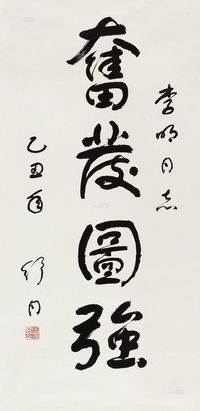 李明同志
奮發圖強
乙丑年
舒同